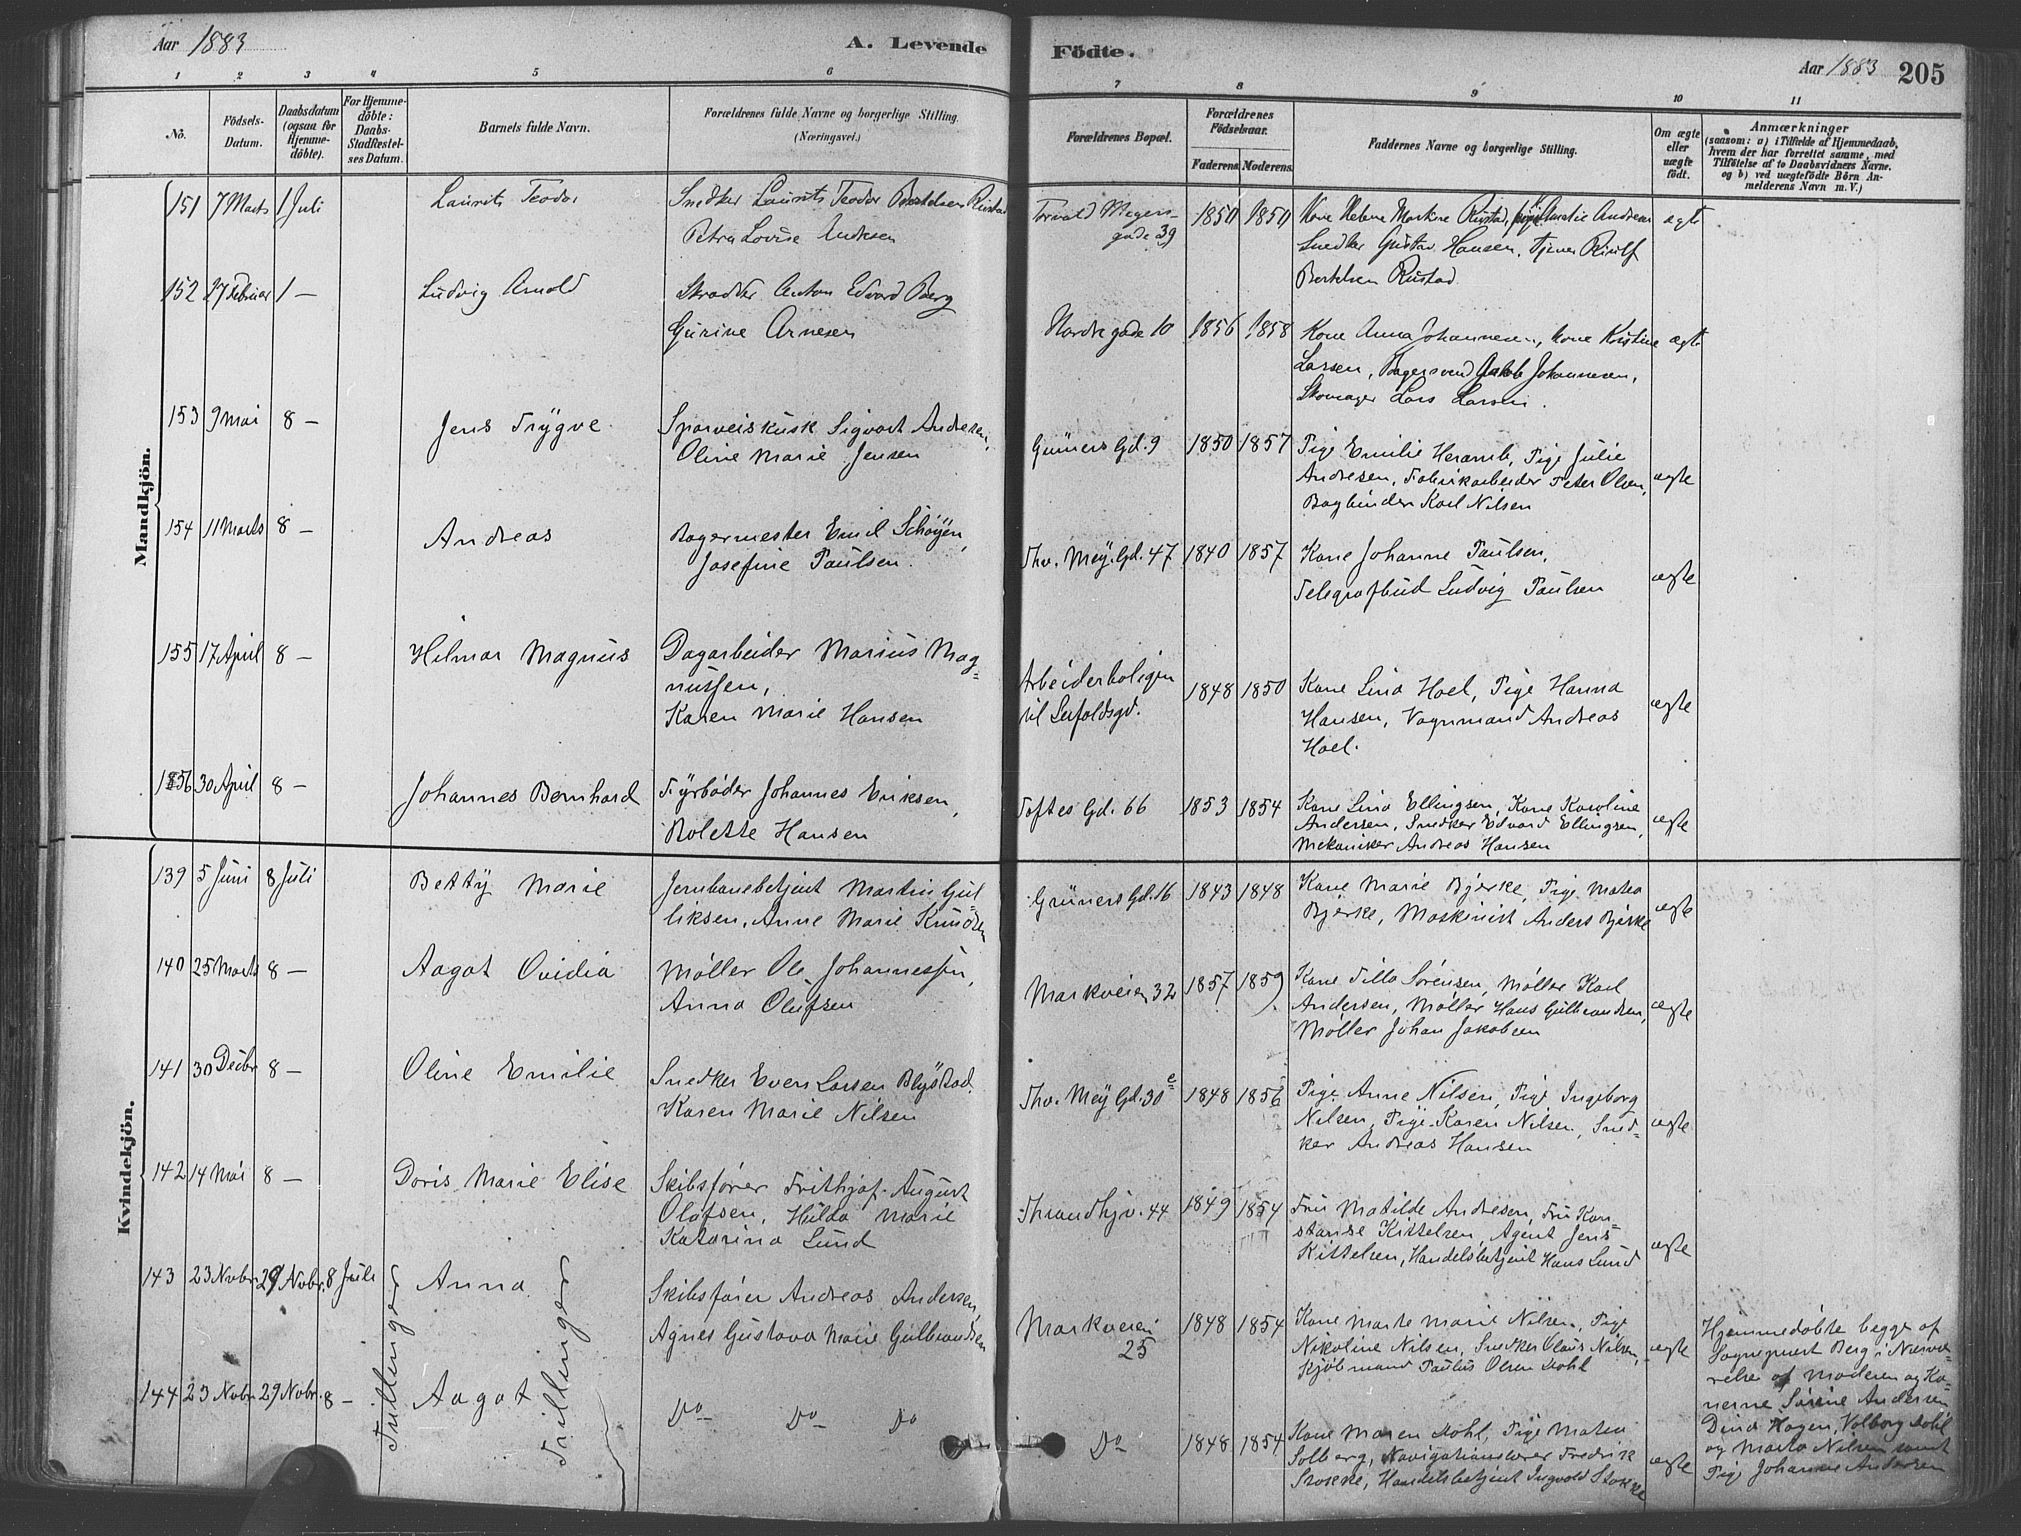 Aar 1883
A. Levende
Födte.
Aar 1883
205
1 2 3 4 5 6
7 8 9 10 11
No.
Födsels-Datum.
Daabsdatum (ogsaa for Hjemmedöbte).
For Hjemmedöbte: Daabs-Stadfestelses Datum.
Barnets fulde Navn.
Forældrenes fulde Navne og borgerlige Stilling. (Næringsvei.)
Forældrenes Bopæl.
Forældrenes Födselsaar.
Faderens
Moderens.
Faddernes Navne og borgerlige Stilling.
Om ægte eller uægte födt.
Anmærkninger
(saasom: a) i Tilfælde af Hjemmedaab, hvem der har forrettet samme, med Tilföielse af to Daabsvidners Navne. og b) ved uægtefödte Börn Anmelderens Navn m. V.)
Mandkjön.
151 7 Marts 1 Juli Laurits Teodor
Snedker Laurits Teodor Bertelsen Rustad
Petra Lovise Andersen
Torvald Meyers-
gade 39
1850 1850
Kone Helene Martine Rustad, Pige Amalie Andresen
Snedker Gustav Hansen, Tjener Rudolf
Bertelsen Rustad.
ægte
152 27 Februar 1 — Ludvig Arnold
Skradder Anton Edvard Berg
Gurine Arnesen
Nordre gade 10
1856 1858
Kone Anna Johannesen, Kone Kristine
Larsen, Bagersvend Jakob Johannesen,
Skomager Lars Larsen.
ægte
153 9 Mai 8 — Jens Trygve
Sporveiskusk Sigvart Andresen,
Oline Marie Jensen
Grüners Gd. 9
1850 1857
Pige Emilie Heramb, Pige Julie
Andresen, Fabrikarbeider Peter Olsen,
Bogbinder Karl Nilsen
ægte
154 11 Marts 8 — Andreas
Bagermester Emil Schøyen,
Josefine Paulsen.
Thv. Mey. Gd. 47
1840 1857
Kone Johanne Paulsen,
Telegrafbud Ludvig Paulsen
ægte
155 17 April 8 — Hilmar Magnus
Dagarbeider Marius Mag-
nussen,
Karen Marie Hansen
Arbeiderboligen
til Seifoldsgd.
1848 1850
Kone Lina Hoel, Pige Hanna
Hansen, Vognmand Andreas
Hoel.
ægte
156 30 April 8 — Johannes Bernhard
Fyrbøder Johannes Eriksen,
Rolette Hansen
Toftes Gd. 66
1853 1854
Kone Lina Ellingsen, Kone Karoline
Andersen, Snedker Edvard Ellingsen,
Mekaniker Andreas Hansen
ægte
Kvindekjön.
139 5 Juni 8 Juli Betty Marie
Jernbanebetjent Martin Gul-
liksen, Anne Marie Knudsen
Grüners Gd. 16
1843 1848
Kone Marie Bjerke, Pige Matea
Bjerke, Maskinist Anders Bjerke
ægte
140 25 Marts 8 — Aagot Ovidia
Møller Ole Johannessen,
Anna Olufsen
Markveien 32
1857 1859
Kone Tilla Sørensen, Møller Karl
Andersen, Møller Hans Gulbrandsen,
Møller Johan Jakobsen
ægte
141 30 Decbr 8 — Oline Emilie
Snedker Even Larsen Blystad
Karen Marie Nilsen
Thv. Mey Gd. 30 e
1848 1856
Pige Anne Nilsen, Pige Ingeborg
Nilsen, Pige Karen Nilsen, Sned-
ker Andreas Hansen
ægte
142 14 Mai 8 — Doris Marie Elise
Skibsfører Frithjof August
Olafsen, Hilda Marie
Katarina Lund
Thrandhjv. 44
1849 1854
Fru Matilde Andresen, Fru Kon-
stanse Kittelsen, Agent Jens
Kittelsen, Handelsbetjent Hans Lund
ægte
143 23 Novbr. 29 Novbr. 8 Juli Anna
Skibsfører Andreas Andersen,
Agnes Gustava Marie Gulbrandsen
Markveien
25
1848 1854
Kone Marte Marie Nilsen, Pige
Nikoline Nilsen, Snedker Olaus Nilsen,
Kjøbmand Paulus Olsen Dohl
ægte
Tvillinger
Tvillinger
144 23 Novbr 29 Novbr. 8 — Aagot
Do Do Do
Do
1848 1854
Kone Maren Dohl, Pige Matea
Solberg, Navigationslærer Fredrik
Stokke, Handelsbetjent Ingvald Stokke
ægte
Hjemmedøbte begge af
Sognepræst Berg i Nærvæ-
relse af Moderen og Ko-
nerne Sørine Andersen
Dina Hagen, Valborg Dohl
og Marta Nilsen samt
Pige Johanne Andersen